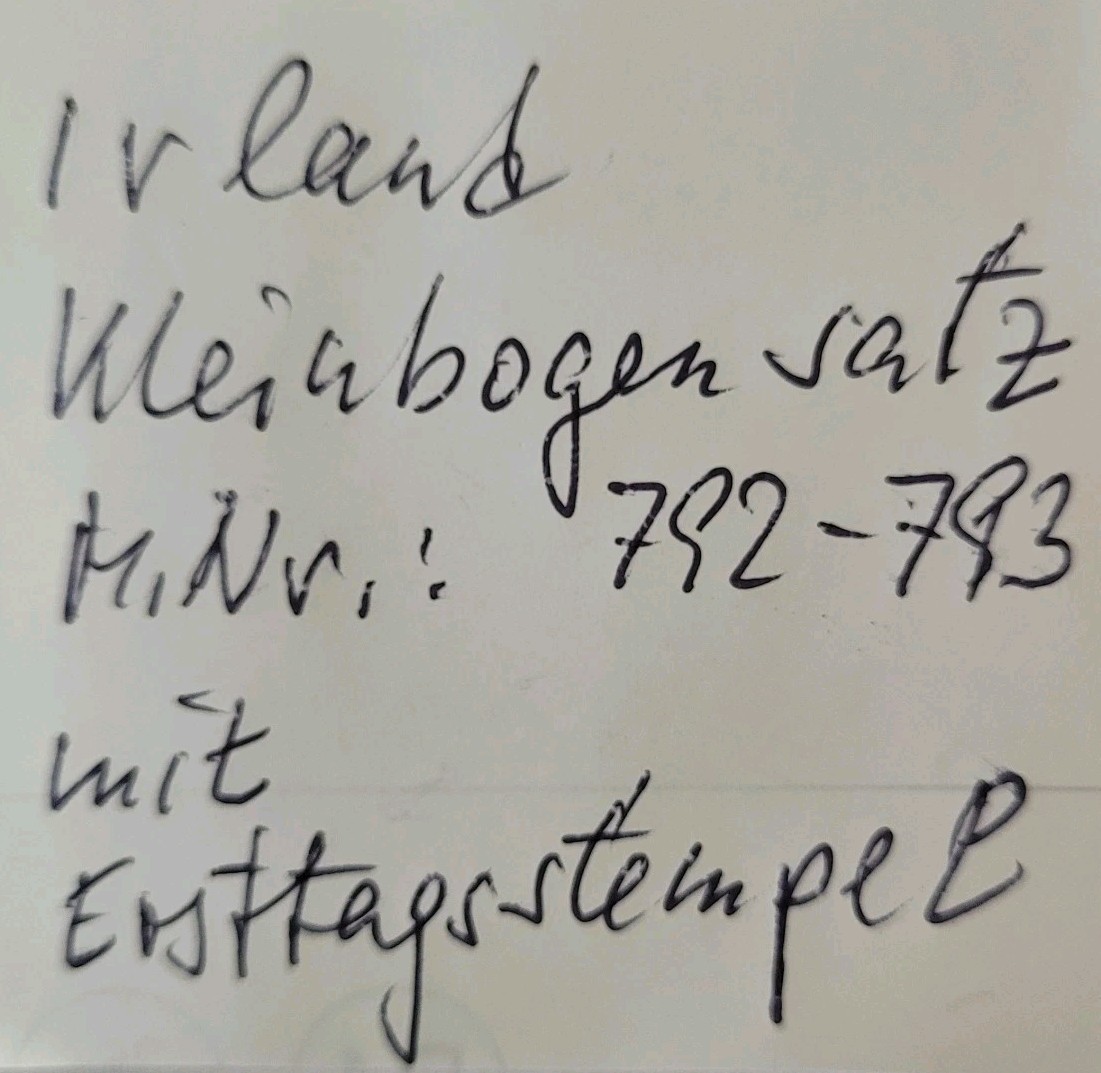 Irland
Kleinbogensatz
M.Nr.: 792-793
mit
Ersttagsstempel